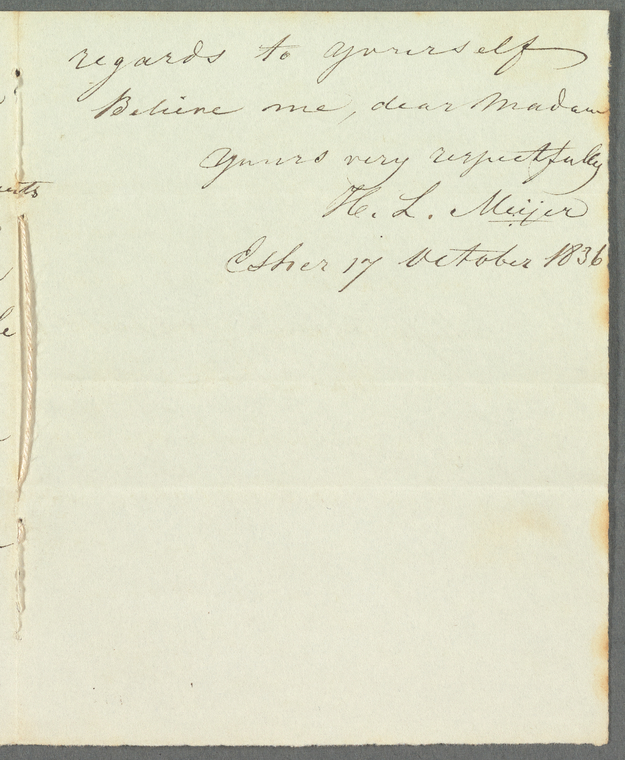 regards to yourself
Believe me, dear Madam
yours very respectfully
H. L. Meijer
Esher 17 October 1836